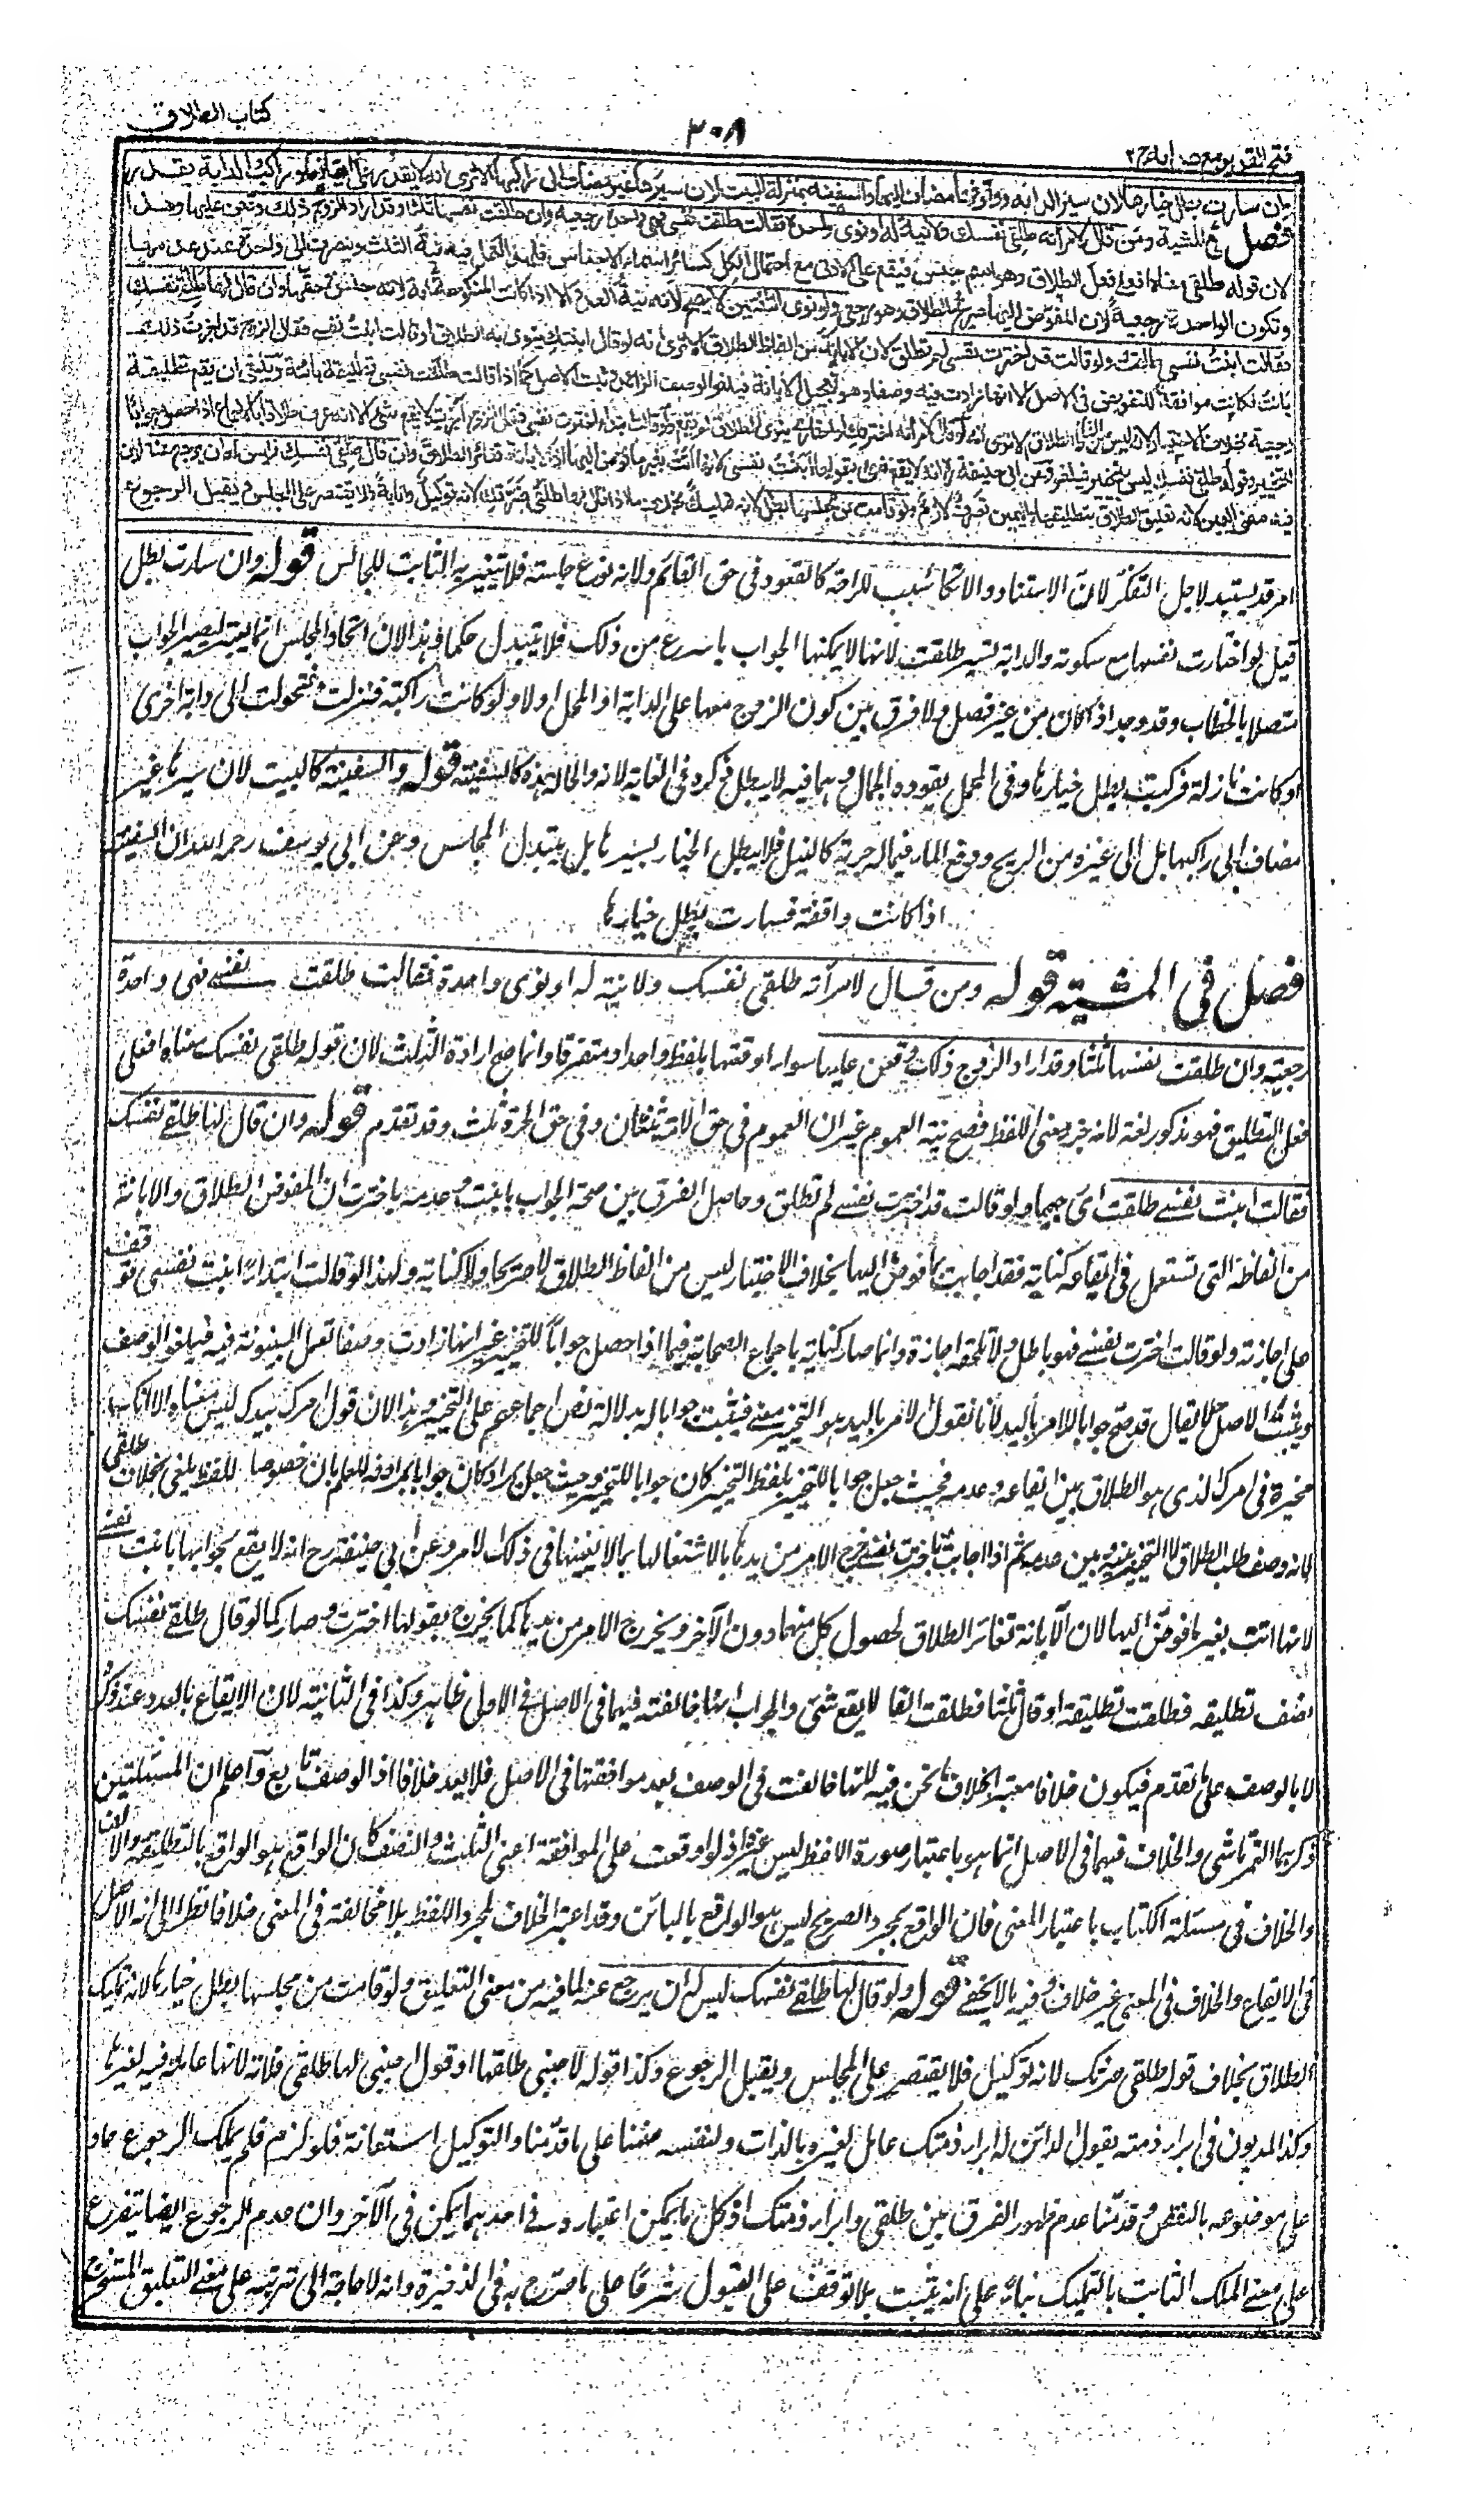 كتاب الطلاق
٣٠٨
فتح القدير مع هدايه ج ٢
وان سارت بطل خيارها لان سير الدابة ووقوفها مضاف اليها والسفينة بمنزلة البيت لان سيرها غير مضاف الى راكبها الا ترى انه لا يقدر على ايقافها وراكب الدابة يقدر
فصل في المشية ومن قال لامرأته طلقي نفسك ولا نية له او نوى واحدة فقالت طلقت نفسي فهي واحدة رجعية وان طلقت نفسها ثلثا وقد اراد الزوج ذلك وقعن عليها وهذا
لان قوله طلقي معناه افعلي فعل الطلاق وهو اسم جنس فيقع على الادنى مع احتمال الكل كسائر اسماء الاجناس فلهذا تعمل فيه نية الثلث وينصرف الى واحدة عند عدمها
وتكون الواحدة رجعية لان المفوض اليها صريح الطلاق وهو رجعي ولو نوى الثنتين لا يصح لانه نية العدد الا اذا كانت المنكوحة امة لانه جنس في حقها وان قال لها طلقي نفسك
فقالت ابنت نفسي طلقت ولو قالت قد اخترت نفسي لم تطلق لان الابانة من الفاظ الطلاق الا ترى انه لو قال ابنتك ينوي به الطلاق او قالت ابنت نفسي فقال الزوج قد اجزت ذلك
بانت فكانت موافقة للتفويض في الاصل الا انها زادت فيه وصفا وهو تعجيل الابانة فيلغو الوصف الزائد ويثبت الاصل كما اذا قالت طلقت نفسي تطليقة بائنة وينبغي ان يقع تطليقة
رجعية بخلاف الاختيار لانه ليس من الفاظ الطلاق الا ترى انه لو قال لامرأته اخترتك او اختاري ينوي الطلاق لم يقع ولو قالت ابتداء اخترت نفسي فقال الزوج اجزت لا يقع شيء الا انه عرف طلاقا بالاجماع اذا حصل جوابا
للتخيير وقوله طلقي نفسك ليس بتخيير فيلغو وعن ابي حنيفة رح انه لا يقع شيء بقولها ابنت نفسي لانها اتت بغير ما فوض اليها اذ الابانة تغاير الطلاق وان قال طلقي نفسك فليس له ان يرجع عنه لان
فيه معنى اليمين لانه تعليق الطلاق بتطليقها واليمين تصرف لازم ولو قامت عن مجلسها بطل لانه تمليك بخلاف ما اذا قال لها طلقي ضرتك لانه توكيل وانابة فلا يقتصر على المجلس ويقبل الرجوع
امر قد يستبد لاجل التفكر لان الاستناد والاتكاء سبب للراحة كالقعود في حق القائم ولانه نوع جلسة فلا يتغير به الثابت للجالس قوله وان سارت بطل
قيل لو اختارت نفسها مع سكوته والدابة تسير طلقت لانها لا يمكنها الجواب باسرع من ذلك فلا يتبدل حكما وهذا لان اتحاد المجلس انما يعتبر ليصير الجواب
متصلا بالخطاب وقد وجد اذا كان من غير فصل ولا فرق بين كون الزوج معها على الدابة او المحمل اولا ولو كانت راكبة فنزلت او تحولت الى دابة اخرى
او كانت نازلة فركبت بطل خيارها وفي المحمل يقوده الجمال وهما فيه لا يبطل ذكره في الغاية لانه والحالة هذه كالسفينة قوله والسفينة كالبيت لان سيرها غير
مضاف الى راكبها بل الى غيره من الريح ودفع الماء فيما له جرية كالنيل فلا يبطل الخيار بسيرها بل بتبدل المجلس وعن ابي يوسف رحمه الله ان السفينة
اذا كانت واقفة فسارت بطل خيارها
فصل في المشية قوله ومن قال لامرأته طلقي نفسك ولا نية له او نوى واحدة فقالت طلقت نفسي فهي واحدة
رجعية وان طلقت نفسها ثلثا وقد اراد الزوج ذلك وقعن عليها سواء اوقعتها بلفظ واحد او متفرقا وانما صح ارادة الثلث لان قوله طلقي نفسك معناه افعلي
فعل التطليق فهو مذكور لغة لانه جزء معنى اللفظ فصح نية العموم غير ان العموم في حق الامة ثنتان وفي حق الحرة ثلث وقد تقدم قوله وان قال لها طلقي نفسك
فقالت ابنت نفسي طلقت اي رجعيا ولو قالت قد اخترت نفسي لم تطلق وحاصل الفرق بين صحة الجواب بابنت وعدمه باخترت ان المفوض الطلاق والابانة
من الفاظه التي تستعمل في ايقاعه كناية فقد اجابت بما فوض اليها بخلاف الاختيار ليس من الفاظ الطلاق لا صريحا ولا كناية ولهذا لو قالت ابتداء ابنت نفسي توقف
على اجازته ولو قالت اخترت نفسي فهو باطل ولا تلحقه اجازة وانما صار كناية باجماع الصحابة فيما اذا حصل جوابا للتخيير غير انها زادت وصفا تعجل البينونة فيه فيلغو الوصف
ويثبت الاصل لا يقال قد صح جوابا للامر باليد لانا نقول الامر باليد هو التخيير معنى فيثبت جوابا له بدلالة نص اجماعهم على التخيير وهذا لان قوله امرك بيدك ليس معناه الا انك
مخيرة في امرك الذي هو الطلاق بين ايقاعه وعدمه فحيث جعل جوابا للتخيير بلفظ التخيير كان جوابا للتخيير وحيث جعل كان جوابا بمرادفه للعلم بان خصوص اللفظ ملغى بخلاف طلقي
لانه وصف طلب الطلاق لا التخيير بينه وبين عدمه ثم اذا اجابت باخترت نفسي خرج الامر من يدها لاشتغالها بما لا يعنيها في ذلك الامر وعن ابي حنيفة رح انه لا يقع بجوابها بابنت نفسي
لانها اتت بغير ما فوض اليها لان الابانة تغاير الطلاق لحصول كل منهما دون الآخر ويخرج الامر من يدها كما يخرج بقولها اخترت وصار كما لو قال طلقي نفسك
نصف تطليقة فطلقت تطليقة او قال ثلثا فطلقت الفا لا يقع شيء والجواب انها خالفته فيهما في الاصل في الاولى ظاهر وكذا في الثانية لان الايقاع بالعدد عند ذكره
لا بالوصف على ما تقدم فيكون خلافا معتبرا بخلاف ما نحن فيه لانها خالفت في الوصف بعد موافقتها في الاصل فلا يعد خلافا اذ الوصف تابع واعلم ان المسئلتين
ذكرهما التمرتاشي والخلاف فيهما في الاصل انما هو باعتبار صورة اللفظ ليس غير اذ لو اوقعت على الموافقة اعني الثلث والنصف كان الواقع هو الواقع بالتطليقة والالف
والخلاف في مسئلة الكتاب باعتبار المعنى فان الواقع بمجرد الصريح ليس هو الواقع بالبائن وقد اعتبر الخلاف لمجرد اللفظ بلا مخالفة في المعنى خلافا نظرا الى انه الاصل
في الايقاع والخلاف في المعنى غير خلاف وفيه ما لا يخفى قوله ولو قال لها طلقي نفسك ليس له ان يرجع عنه لما فيه من معنى التعليق ولو قامت من مجلسها بطل خيارها لانه تمليك
الطلاق بخلاف قوله طلقي ضرتك لانه توكيل فلا يقتصر على المجلس ويقبل الرجوع وكذا قوله لاجنبي طلقها او قول اجنبي لها طلقي فلانة لانها عاملة فيه لغيرها
وكذا المديون في ابراء ذمته بقول الدائن له ابراء ذمتك عامل لغيره بالذات ولنفسه ضمنا على ما قدمنا والتوكيل استعانة فلو لزم فلم يملك الرجوع عاد
على موضوعه بالنقض وقد قدمنا عدم ظهور الفرق بين طلقي وابراء ذمتك اذ كل ما يمكن اعتباره في احدهما يمكن في الآخر وان عدم الرجوع ايضا يتفرع
على معنى الملك الثابت بالتمليك بناء على انه يثبت بلا توقف على القبول شرعا على ما صرح به في الذخيرة وانه لا حاجة الى ترتبه على معنى التعليق المستخرج